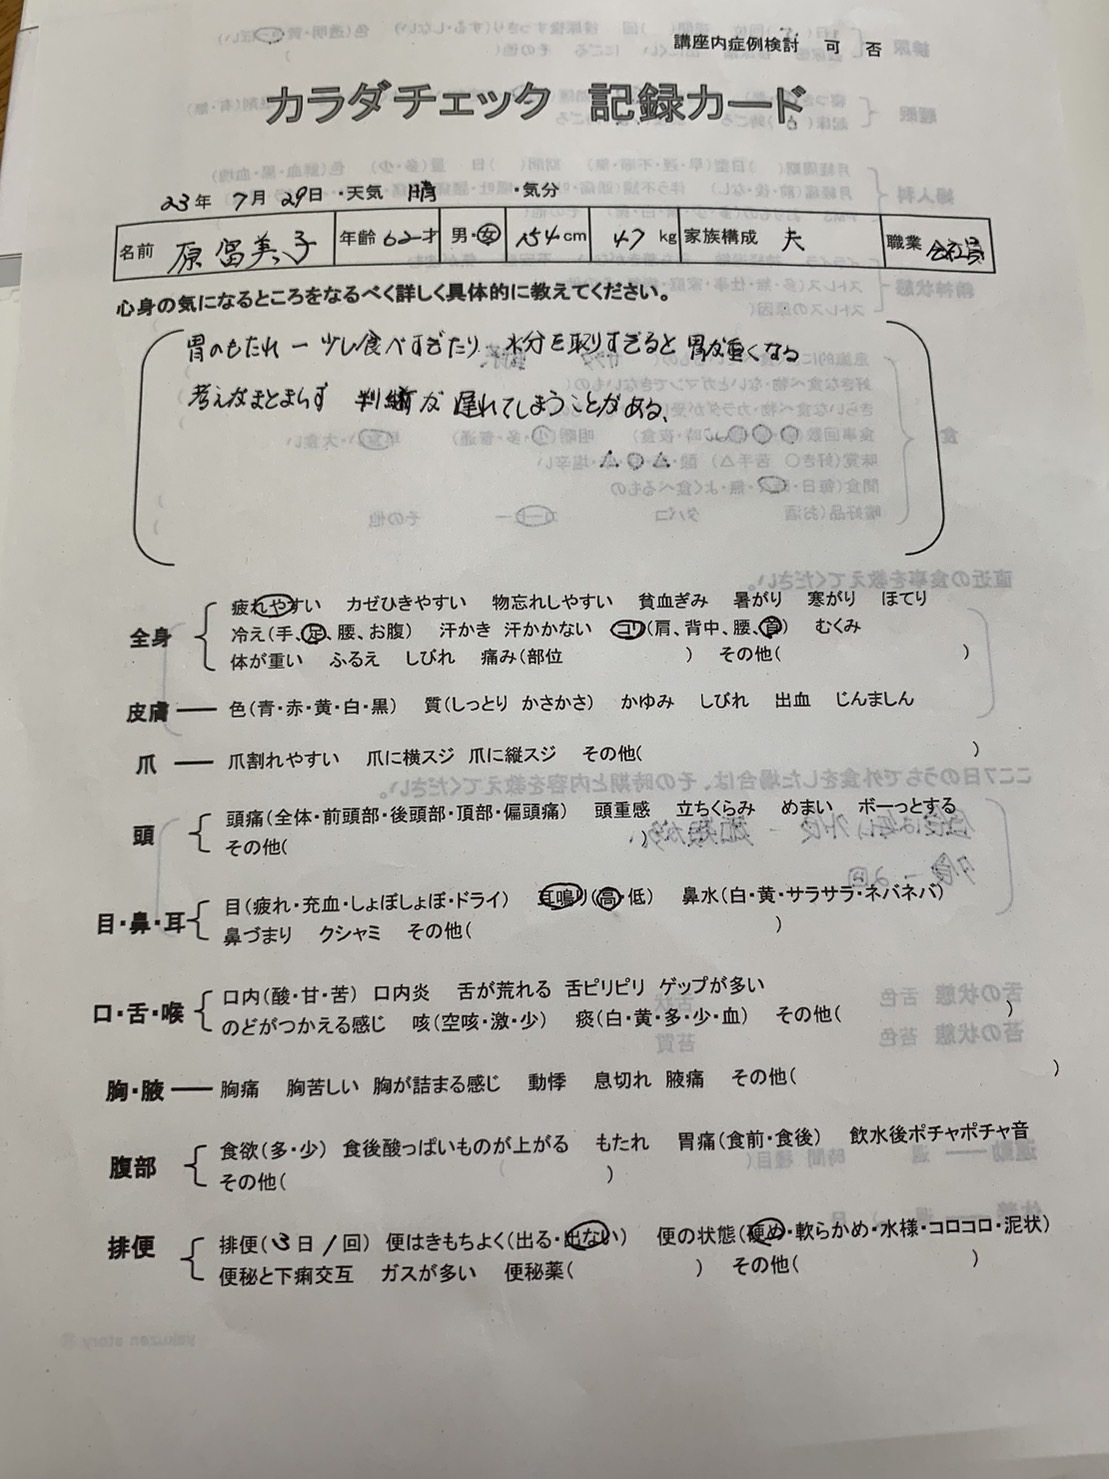 講座内症例検討 可 否
カラダチェック 記録カード
23年 7月 29日 ・天気 晴 ・気分
名前 原 留美子 年齢 62才 男・女 154cm 47kg 家族構成 夫 職業 会社員
心身の気になるところをなるべく詳しく具体的に教えてください。
胃のもたれ ー 少し食べすぎたり 水分を取りすぎると 胃が重くなる
考えがまとまらず 判断が 遅れてしまうことがある、
全身
疲れやすい カゼひきやすい 物忘れしやすい 貧血ぎみ 暑がり 寒がり ほてり
冷え(手、足、腰、お腹) 汗かき 汗かかない コリ(肩、背中、腰、首) むくみ
体が重い ふるえ しびれ 痛み(部位 ) その他( )
皮膚 色(青・赤・黄・白・黒) 質(しっとり かさかさ) かゆみ しびれ 出血 じんましん
爪 爪割れやすい 爪に横スジ 爪に縦スジ その他( )
頭
頭痛(全体・前頭部・後頭部・頂部・偏頭痛) 頭重感 立ちくらみ めまい ボーっとする
その他( )
目・鼻・耳
目(疲れ・充血・しょぼしょぼ・ドライ) 耳鳴り(高・低) 鼻水(白・黄・サラサラ・ネバネバ)
鼻づまり クシャミ その他( )
口・舌・喉
口内(酸・甘・苦) 口内炎 舌が荒れる 舌ピリピリ ゲップが多い
のどがつかえる感じ 咳(空咳・激・少) 痰(白・黄・多・少・血) その他( )
胸・腋 胸痛 胸苦しい 胸が詰まる感じ 動悸 息切れ 腋痛 その他( )
腹部
食欲(多・少) 食後酸っぱいものが上がる もたれ 胃痛(食前・食後) 飲水後ポチャポチャ音
その他( )
排便
排便(3日/回) 便はきもちよく(出る・出ない) 便の状態(硬め・軟らかめ・水様・コロコロ・泥状)
便秘と下痢交互 ガスが多い 便秘薬( ) その他( )